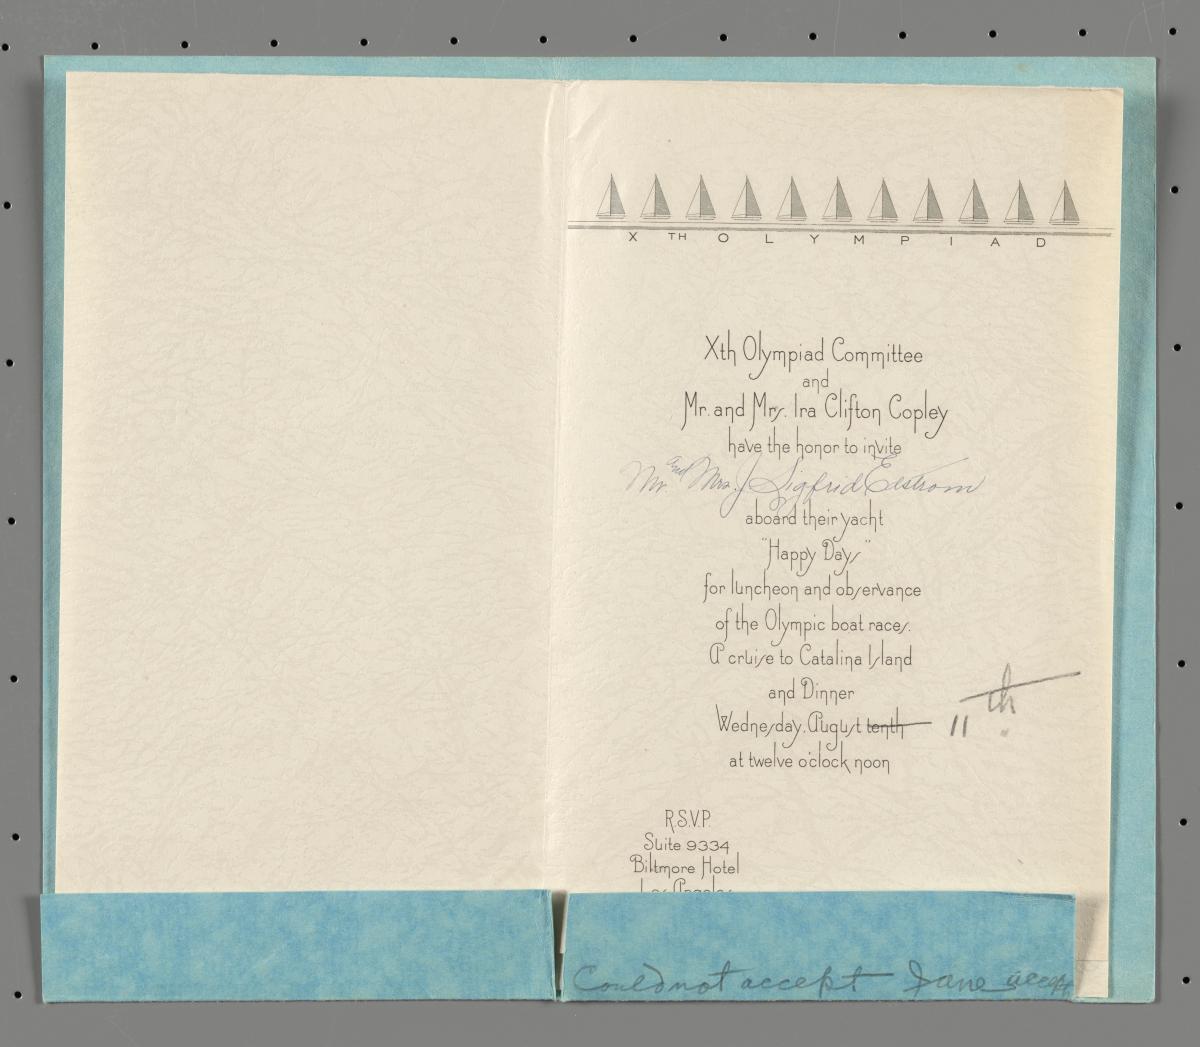 X TH OLYMPIAD
Xth Olympiad Committee
and
Mr. and Mrs. Ira Clifton Copley
have the honor to invite
Mr. and Mrs. J Sigfrid Edstrom
aboard their yacht
"Happy Days"
for luncheon and observance
of the Olympic boat races.
A cruise to Catalina Island
and Dinner
Wednesday, August tenth 11th.
at twelve o'clock noon
R.S.V.P.
Suite 9334
Biltmore Hotel
Los Angeles
Could not accept Jane